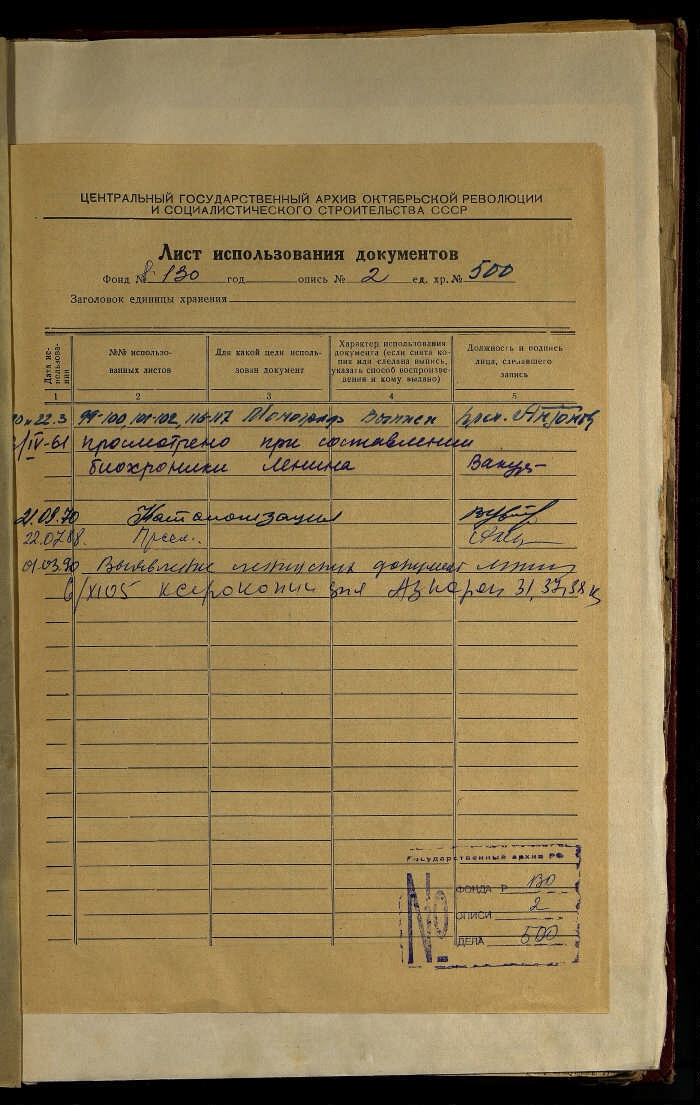 ЦЕНТРАЛЬНЫЙ ГОСУДАРСТВЕННЫЙ АРХИВ ОКТЯБРЬСКОЙ РЕВОЛЮЦИИ
И СОЦИАЛИСТИЧЕСКОГО СТРОИТЕЛЬСТВА СССР
Лист использования документов
Фонд № Р-130 год опись № 2 ед. хр. № 500
Заголовок единицы хранения
Дата ис-
пользова-
ния
№№ использо-
ванных листов
Для какой цели исполь-
зован документ
Характер использования
документа (если снята ко-
пия или сделана выпись,
указать способ воспроизве-
дения и кому выдано)
Должность и подпись
лица, сделавшего
запись
1 2 3 4 5
22.3 99-100, 101-102, 116-117 Монограф Выписки Антонов
IV-61 просмотрено при составлении
биохроники Ленина
21.09.70 Каталогизация
22.07.88.
01.03.90 Выявление документ
XI 05 ксерокопии для 31, 37, 38
Государственный архив РФ
№
ФОНДА Р 130
ОПИСИ 2
ДЕЛА 500